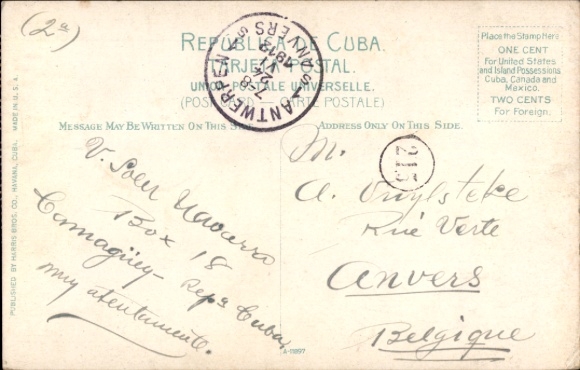 (2a)
REPÚBLICA DE CUBA.
TARJETA POSTAL.
UNION POSTALE UNIVERSELLE.
(POST CARD — CARTE POSTALE)
ANTWERPEN
ANVERS
7-8
1912
Place the Stamp Here
ONE CENT
For United States
and Island Possessions
Cuba, Canada and
Mexico.
TWO CENTS
For Foreign.
MESSAGE MAY BE WRITTEN ON THIS SIDE.
ADDRESS ONLY ON THIS SIDE.
PUBLISHED BY HARRIS BROS. CO., HAVANA, CUBA. MADE IN U.S.A.
V. Soler Navarro
Box 18
Camagüey - Repa Cuba,
muy atentamente.
215
M.
A. Vuylsteke
Rue Verte
Anvers
Belgique
A-11897